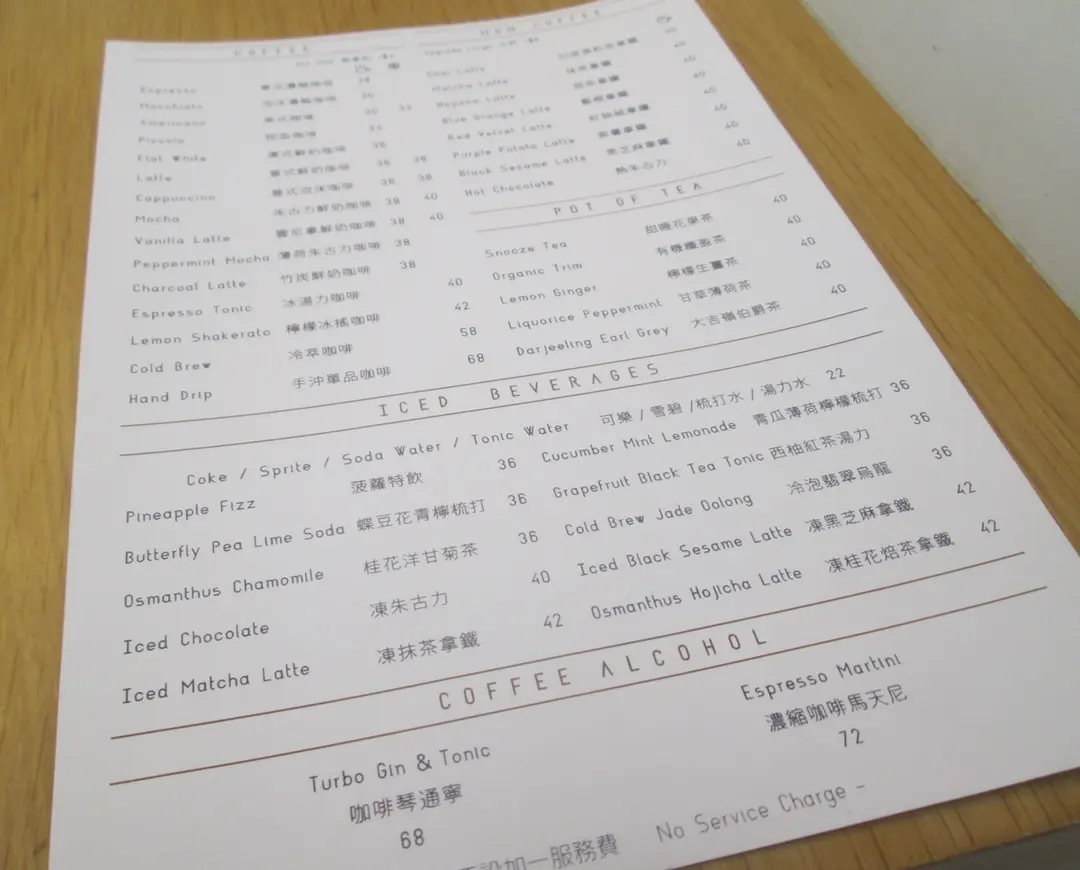 COFFEE
Espresso 38
Macchiato 36
Americano 美式咖啡 30 32
Piccolo 34
Flat White 澳式鮮奶咖啡 36
Latte 意式鮮奶咖啡 36 38
Cappuccino 意式泡沫咖啡 36 38
Mocha 朱古力鮮奶咖啡 38 40
Vanilla Latte 雲尼拿鮮奶咖啡 38 40
Peppermint Mocha 薄荷朱古力咖啡 38
Charcoal Latte 竹炭鮮奶咖啡 38
Espresso Tonic 冰湯力咖啡 40
Lemon Shakerato 檸檬冰搖咖啡 42
Cold Brew 冷萃咖啡 58
Hand Drip 手沖單品咖啡 68
NON COFFEE
Chai Latte
Matcha Latte 抹茶拿鐵 40
Hojicha Latte
Blue Orange Latte 40
Red Velvet Latte 紅絲絨拿鐵 40
Purple Potato Latte 紫薯拿鐵 40
Black Sesame Latte 黑芝麻拿鐵 40
Hot Chocolate 熱朱古力 40
POT OF TEA
Snooze Tea 甜睡花果茶 40
Organic Trim 有機纖盈茶 40
Lemon Ginger 檸檬生薑茶 40
Liquorice Peppermint 甘草薄荷茶 40
Darjeeling Earl Grey 大吉嶺伯爵茶 40
ICED BEVERAGES
Coke / Sprite / Soda Water / Tonic Water 可樂 / 雪碧 /梳打水 / 湯力水 22
Pineapple Fizz 菠蘿特飲 36
Butterfly Pea Lime Soda 蝶豆花青檸梳打 36
Osmanthus Chamomile 桂花洋甘菊茶 36
Iced Chocolate 凍朱古力 40
Iced Matcha Latte 凍抹茶拿鐵 42
Cucumber Mint Lemonade 青瓜薄荷檸檬梳打 36
Grapefruit Black Tea Tonic 西柚紅茶湯力 36
Cold Brew Jade Oolong 冷泡翡翠烏龍 36
Iced Black Sesame Latte 凍黑芝麻拿鐵 42
Osmanthus Hojicha Latte 凍桂花焙茶拿鐵 42
COFFEE ALCOHOL
Turbo Gin & Tonic
咖啡琴通寧
68
Espresso Martini
濃縮咖啡馬天尼
72
設加一服務費 No Service Charge -